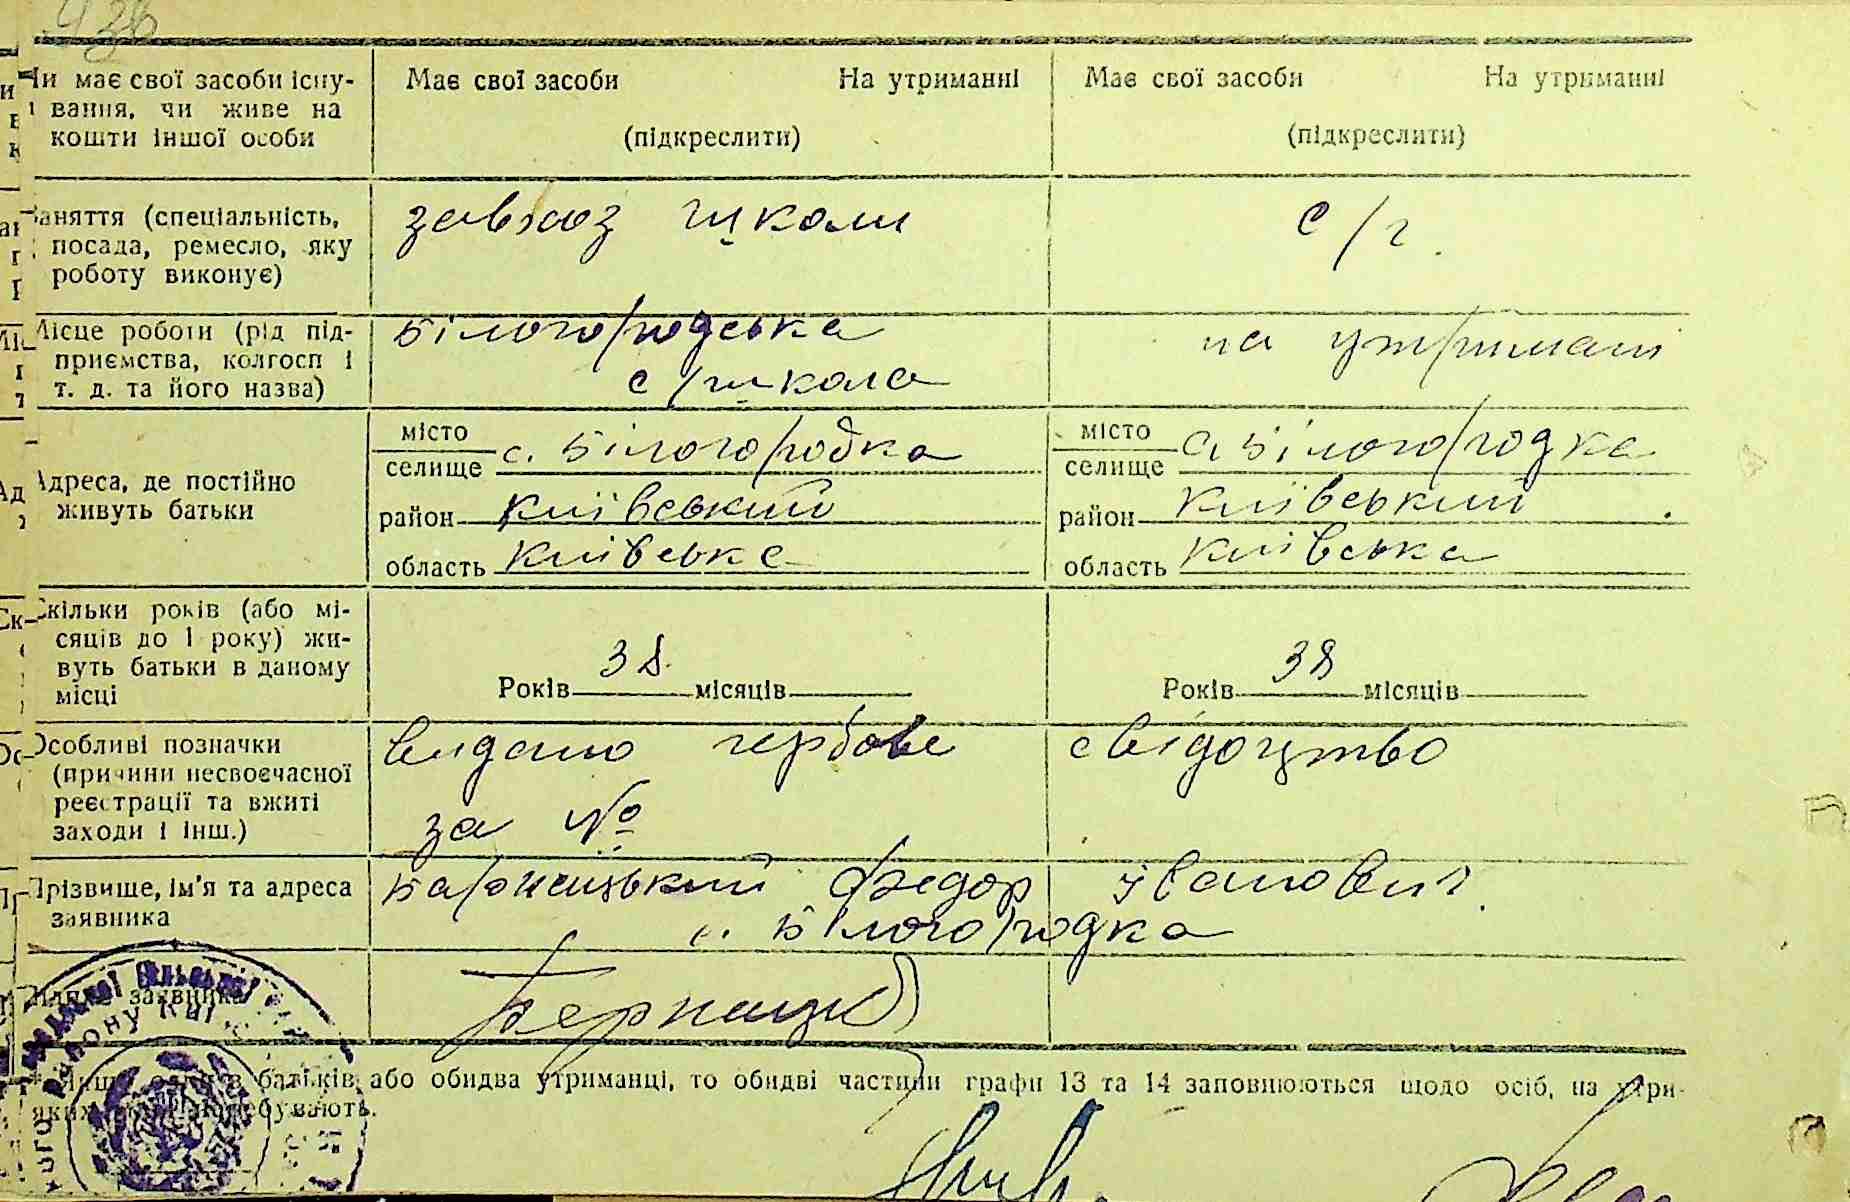 936
Чи має свої засоби існу- Має свої засоби На утриманні Має свої засоби На утриманні
вання, чи живе на
кошти іншої особи (підкреслити) (підкреслити)
Заняття (спеціальність, завгоз школи с/г.
посада, ремесло, яку
роботу виконує)
Місце роботи (рід під- Білогородська на утримані
приємства, колгосп і
т. д. та його назва) с/школа
місто місто
селище с. Білогородка селище с. Білогородка
Адреса, де постійно
живуть батьки район Київський район Київський
область Київська область Київська
Скільки років (або мі-
сяців до 1 року) жи-
вуть батьки в даному 38 38
місці Років місяців Років місяців
Особливі позначки видано гербове свідоцтво
(причини несвоєчасної
реєстрації та вжиті за №
заходи і інш.)
Прізвище, ім'я та адреса Барнацький Федор Іванович.
заявника с. Білогородка
Підпис заявника
* Якщо один з батьків або обидва утриманці, то обидві частини графи 13 та 14 заповнюються щодо осіб, на утри-
яких перебувають.